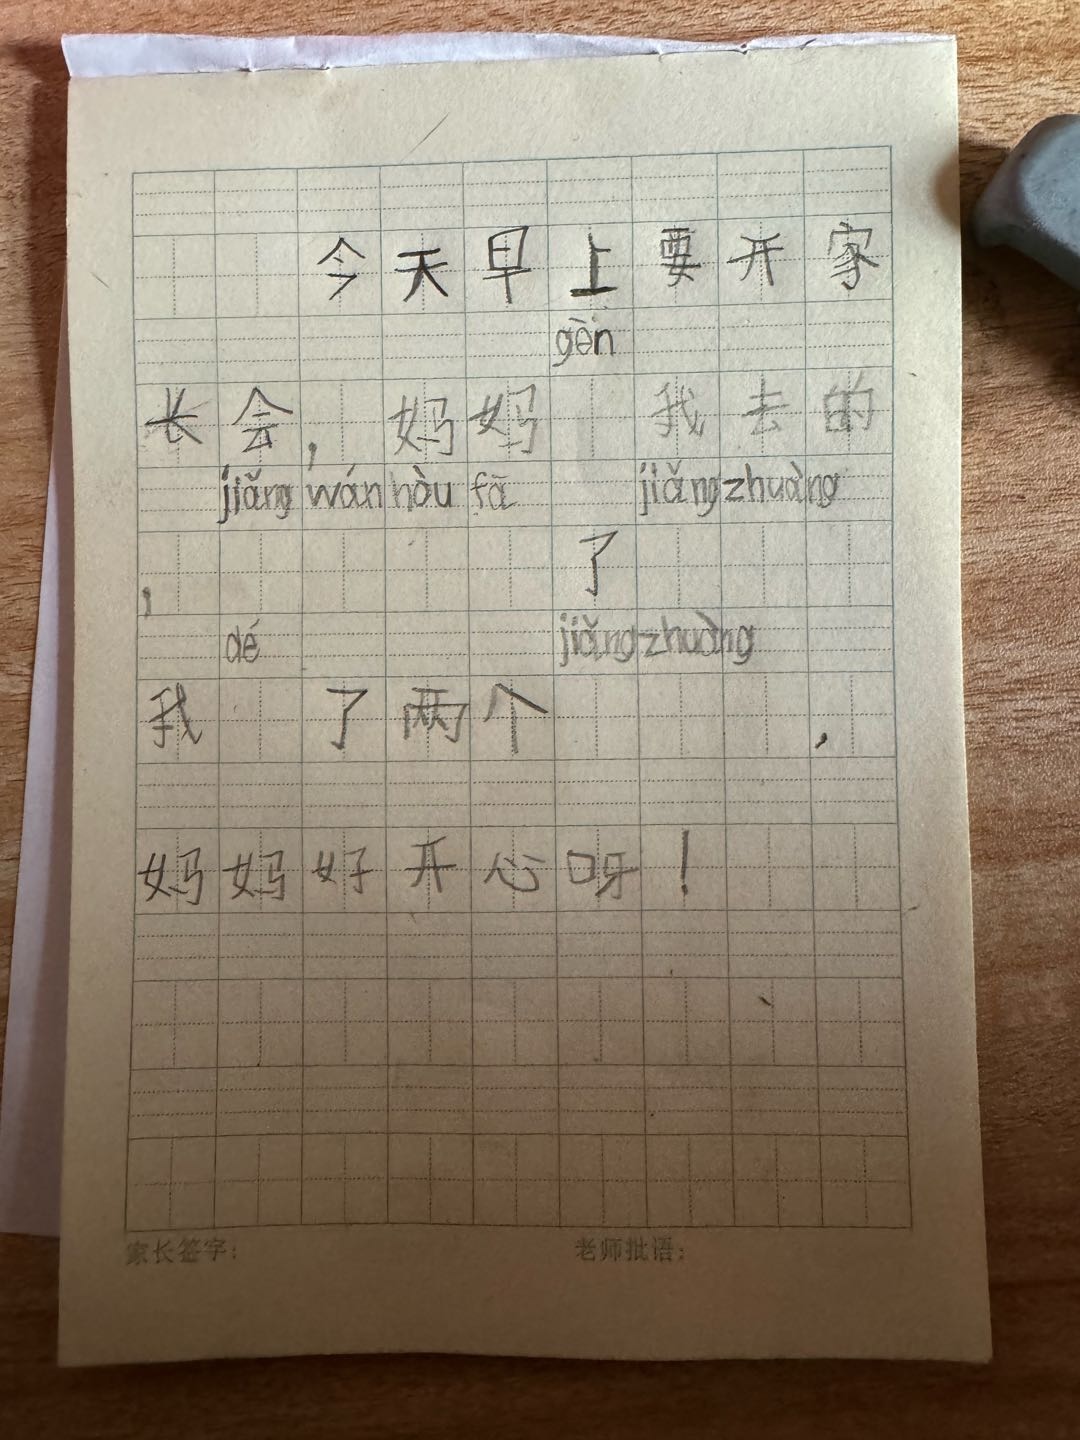 今天早上要开家
gèn
长会，妈妈 我去的
jiǎng wán hòu fā jiǎng zhuàng
， 了
dé jiǎng zhuàng
我 了两个 ，
妈妈好开心呀！
家长签字： 老师批语：